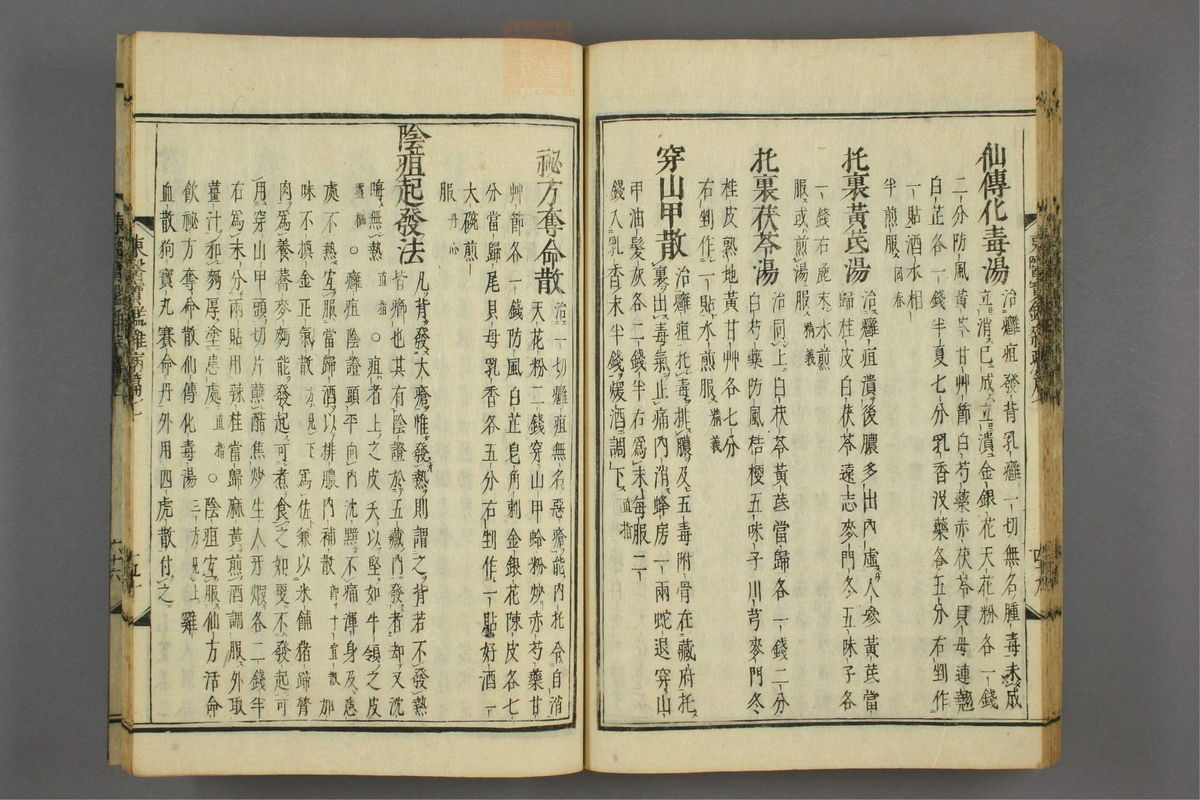 仙傳化毒湯 治癰疽發背乳癰一切無名腫毒未成
立消已成立潰金銀花天花粉各一錢
二分防風黃芩甘艸節白芍藥赤茯苓貝母連翹
白芷各一錢半夏七分乳香沒藥各五分右剉作
一貼酒水相
半煎服回春
托裏黃芪湯 治癰疽潰後膿多出內虛人參黃芪當
歸桂皮白茯苓遠志麥門冬五味子各
一錢右麁末水煎
服或煎湯服精義
托裏茯苓湯 治同上白茯苓黃芪當歸各一錢二分
白芍藥防風桔梗五味子川芎麥門冬
桂皮熟地黃甘艸各七分
右剉作一貼水煎服精義
穿山甲散 治癰疽托毒排膿及五毒附骨在藏府托
裏出毒氣止痛內消蜂房一兩蛇退穿山
甲油髮灰各二錢半右爲末每服二
錢入乳香末半錢煖酒調下直指
祕方奪命散 治一切癰疽無名惡瘡能內托令自消
天花粉二錢穿山甲蛤粉炒赤芍藥甘
艸節各一錢防風白芷皂角刺金銀花陳皮各七
分當歸尾貝母乳香各五分右剉作一貼好酒一
大碗煎
服丹心
陰疽起發法 凡背發大瘡惟發熱則謂之背若不發熱
皆癤也其有陰證於五藏內發者却又沈
晦無熱直指○疽者上之皮夭以堅如牛領之皮
靈樞○癰疽陰證頭平向內沈黯不痛渾身及患
處不熱宜服當歸酒以排膿內補散卽十宣散加
味不換金正氣散方見下爲佐兼以米餔猪蹄膂
肉爲養蕎麥麪能發起可煮食之如要不發起可
用穿山甲頭切片蘸醋焦炒生人牙煆各二錢半
右爲末分兩貼用辣桂當歸麻黃煎酒調服外取
薑汁和麪厚塗患處直指○陰疽宜服仙方活命
飲祕方奪命散仙傳化毒湯三方見上雞
血散狗寶丸賽命丹外用四虎散付之
東醫寶鑑雜病篇七